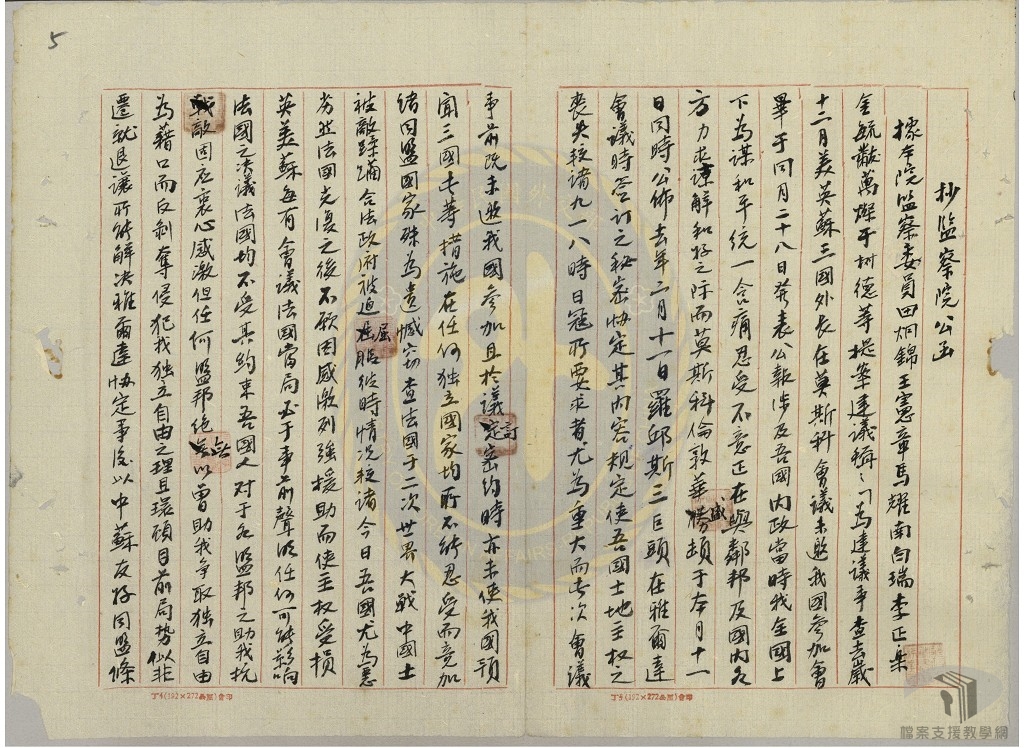 5
抄監察院公函
據本院監察委員田炯錦王憲章馬耀南白瑞李正樂
金毓黻萬燦于樹德等提案建議稱:「為建議事查去歲
十二月美英蘇三國外長在莫斯科會議未邀我國參加會
畢于同月二十八日發表公報涉及吾國內政當時我全國上
下為謀和平統一含痛忍受不意正在與鄰邦及國內各
方力求諒解和好之際而莫斯科倫敦華盛頓于本月十一
日同時公佈去年二月十一日羅邱斯三巨頭在雅爾達
會議時簽訂之秘密協定其內容規定使吾國土地主權之
喪失較諸九一八時日寇所要求者尤為重大而此次會議
事前既未邀我國參加且於議訂密約時亦未使我國預
聞三國此等措施在任何獨立國家均所不能忍受而竟加
諸同盟國家殊為遺憾竊查法國于二次世界大戰中國土
被敵蹂躪合法政府被迫屈服彼時情況較諸今日吾國尤為惡
劣然法國光復之後不願因感激列強援助而使主權受損
英美蘇每有會議法國當局必于事前聲明任何可能影响
法國之決議法國均不受其約束吾國人對于各盟邦之助我抗
戰敵固應衷心感激但任何盟邦絕無以曾助我爭取獨立自由
為藉口而反剝奪侵犯我獨立自由之理且環顧目前局勢似非
遷就退讓所能解決雅爾達協定事後以中蘇友好同盟條
檔案支援教學網